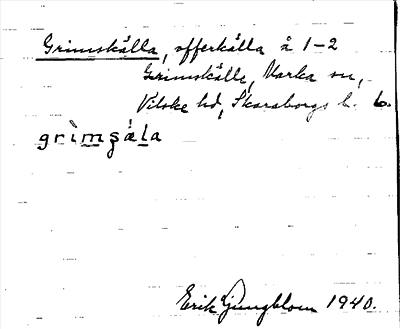 Grimskälla, offerkälla å 1-2
Grimskälle, Marka sn,
Vilske hd, Skaraborgs l. 6.
grìmṣä́la
Erik Ljungblom 1940.